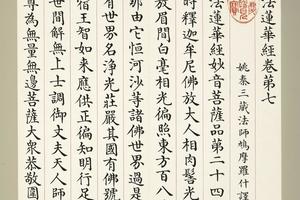 法蓮華經卷第七
姚秦三藏法師鳩摩羅什譯
法蓮華經妙音菩薩品第二十四
時釋迦牟尼佛放大人相肉髻光
放眉間白毫相光徧照東方百八
那由它恒河沙等諸佛世界過是
有世界名淨光莊嚴其國有佛號
宿王智如來應供正徧知明行足
世間解無上士調御丈夫天人師
尊為無量無邊菩薩大衆恭敬圍